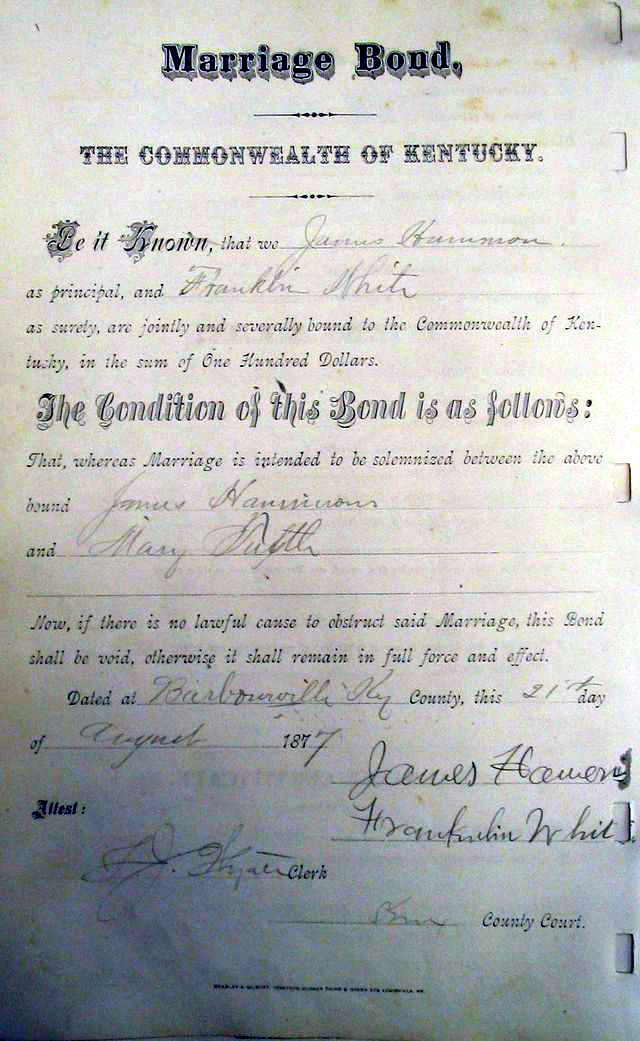 Marriage Bond.
THE COMMONWEALTH OF KENTUCKY.
Be it Known, that we James Hammon.
as principal, and Franklin White
as surety, are jointly and severally bound to the Commonwealth of Ken-
tucky, in the sum of One Hundred Dollars.
The Condition of this Bond is as follows:
That, whereas Marriage is intended to be solemnized between the above
bound James Hammons
and Mary
Now, if there is no lawful cause to obstruct said Marriage, this Bond
shall be void, otherwise it shall remain in full force and effect.
Dated at Barbourville Ky County, this 21st day
of August 1877
James Hamons
Attest:
Franklin Whit
Clerk
Knox County Court.